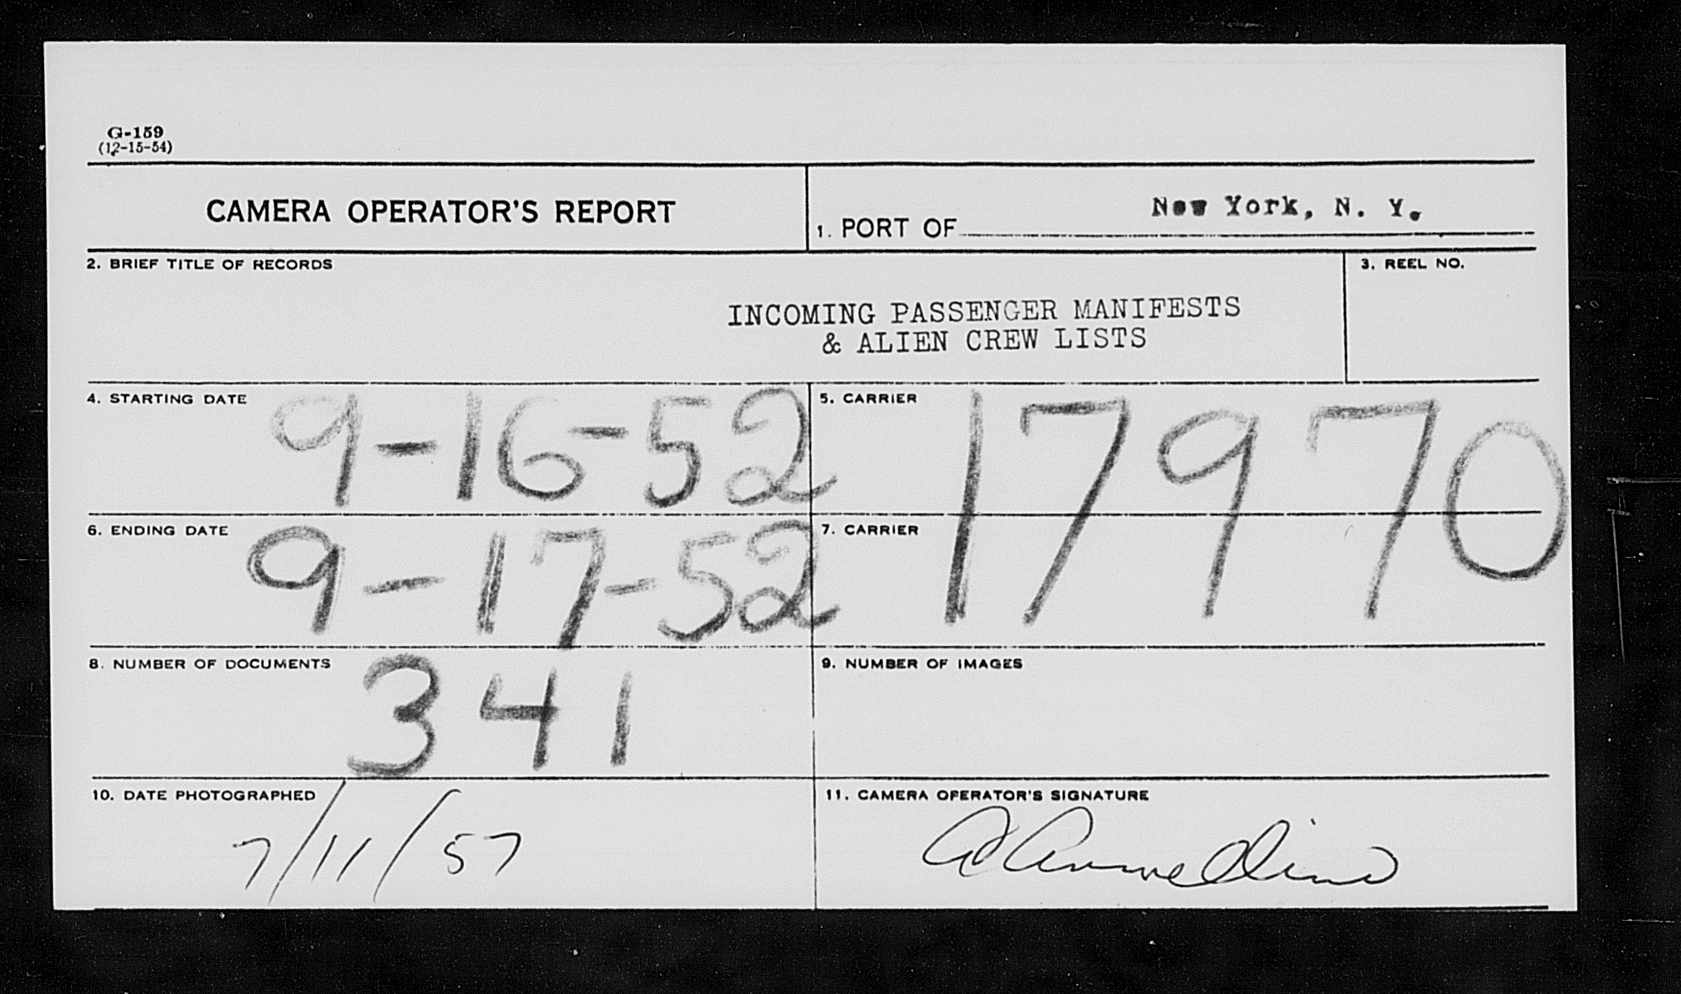 G-159
(12-15-54)
CAMERA OPERATOR'S REPORT
1. PORT OF New York, N. Y.
2. BRIEF TITLE OF RECORDS
3. REEL NO.
INCOMING PASSENGER MANIFESTS
& ALIEN CREW LISTS
4. STARTING DATE 9-16-52
5. CARRIER 17970
6. ENDING DATE 9-17-52
7. CARRIER
8. NUMBER OF DOCUMENTS 341
9. NUMBER OF IMAGES
10. DATE PHOTOGRAPHED
7/11/57
11. CAMERA OPERATOR'S SIGNATURE